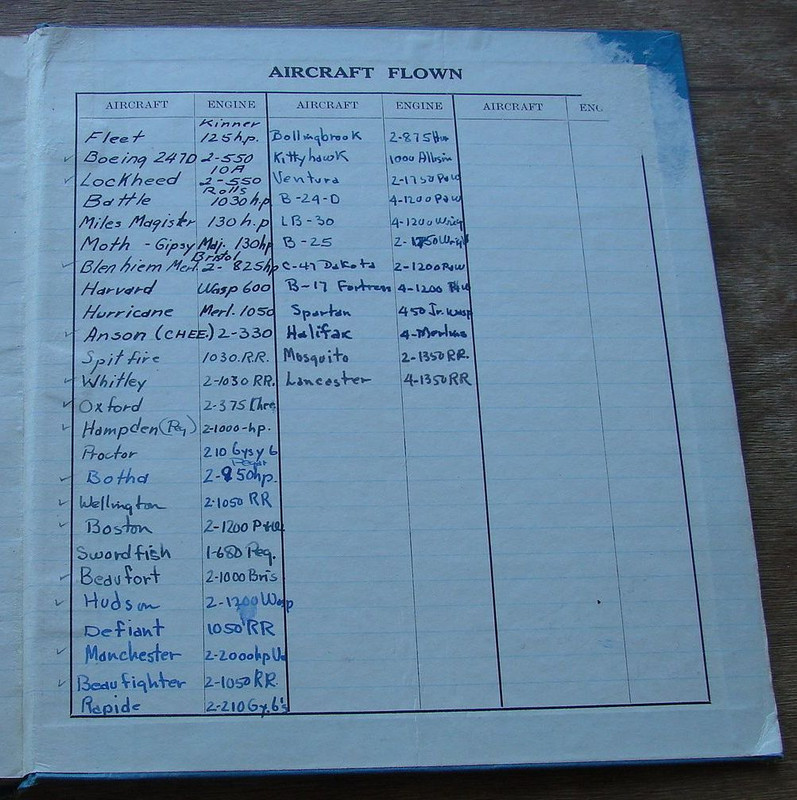 AIRCRAFT FLOWN
AIRCRAFT ENGINE AIRCRAFT ENGINE AIRCRAFT ENG
Kinner
Fleet 125 h.p. Bollingbrook 2-875
Boeing 247D 2-550 Kittyhawk 1000 Allison
10A
Lockheed 2-550 Ventura 2-1750 P&W
Rolls
Battle 1030 h.p B-24-D 4-1200 P&W
Miles Magister 130 h.p LB-30 4-1200 Wrig
Moth - Gipsy Maj. 130 hp B-25 2-1750 Wrig
Bristol
Blenhiem Mer. 2-825 hp C-47 Dakota 2-1200 P&W
Harvard Wasp 600 B-17 Fortress 4-1200
Hurricane Merl. 1050 Spartan 450 Jr. Wasp
Anson (CHEE.) 2-330 Halifax 4-Merlins
Spitfire 1030.RR. Mosquito 2-1350 RR.
Whitley 2-1030 RR. Lancaster 4-1350 RR
Oxford 2-375 Chee
Hampden (Peg) 2-1000-hp.
Proctor 210 Gysy 6
Botha 2-850 hp.
Wellington 2-1050 RR
Boston 2-1200 P&W
Swordfish 1-680 Peg.
Beaufort 2-1000 Bris
Hudson 2-1200 Wasp
Defiant 1050 RR
Manchester 2-2000 hp
Beaufighter 2-1050 RR.
Rapide 2-210 Gy. 6's